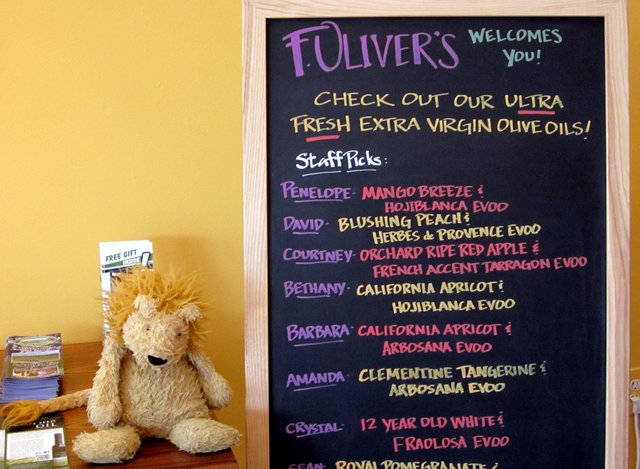 F. OLIVER'S WELCOMES
YOU!
CHECK OUT OUR ULTRA
FRESH EXTRA VIRGIN OLIVE OILS!
Staff Picks:
PENELOPE- MANGO BREEZE &
HOJIBLANCA EVOO
DAVID- BLUSHING PEACH &
HERBES de PROVENCE EVOO
COURTNEY- ORCHARD RIPE RED APPLE &
FRENCH ACCENT TARRAGON EVOO
BETHANY- CALIFORNIA APRICOT &
HOJIBLANCA EVOO
BARBARA- CALIFORNIA APRICOT &
ARBOSANA EVOO
AMANDA- CLEMENTINE TANGERINE &
ARBOSANA EVOO
CRYSTAL- 12 YEAR OLD WHITE &
FRAOLOSA EVOO
SEAN- ROYAL POMEGRANATE &
FREE GIFT
INSIDE